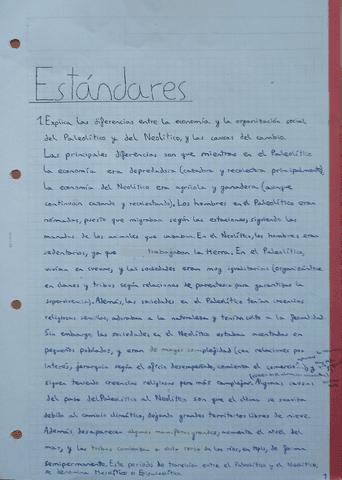 Estándares
1. Explica las diferencias entre la economía y la organización social
del Paleolítico y del Neolítico, y las causas del cambio.
Las principales diferencias son que mientras en el Paleolítico
la economía era depredadora (cazaba y recolectaba principalmente),
la economía del Neolítico era agrícola y ganadera (aunque
continúan cazando y recolectando). Los hombres en el Paleolítico eran
nómadas, puesto que migraban según las estaciones, siguiendo las
manadas de los animales que cazaban. En el Neolítico, los hombres eran
sedentarios, ya que trabajaban la tierra. En el Paleolítico,
vivían en cuevas, y las sociedades eran muy igualitarias (organizándose
en clanes y tribus según relaciones de parentesco para garantizar la
supervivencia). Además, las sociedades en el Paleolítico tenían creencias
religiosas sencillas, adoraban a la naturaleza y tenían culto a la fecundidad.
Sin embargo, las sociedades en el Neolítico estaban asentadas en
pequeños poblados, y eran de mayor complejidad (con relaciones por
interés, jerarquía según el oficio desempeñado, comienza el comercio)
siguen teniendo creencias religiosas pero más complejas. Algunas causas
del paso del Paleolítico al Neolítico son que el clima se suaviza
debido al cambio climático, dejando grandes territorios libres de nieve.
Además desaparecen algunos mamíferos grandes, aumenta el nivel del
mar, y las tribus comienzan a vivir cerca de los ríos, en tipis, de forma
semipermanente. Este periodo de transición entre el Paleolítico y el Neolítico,
se denomina Mesolítico o Epipaleolítico.
1